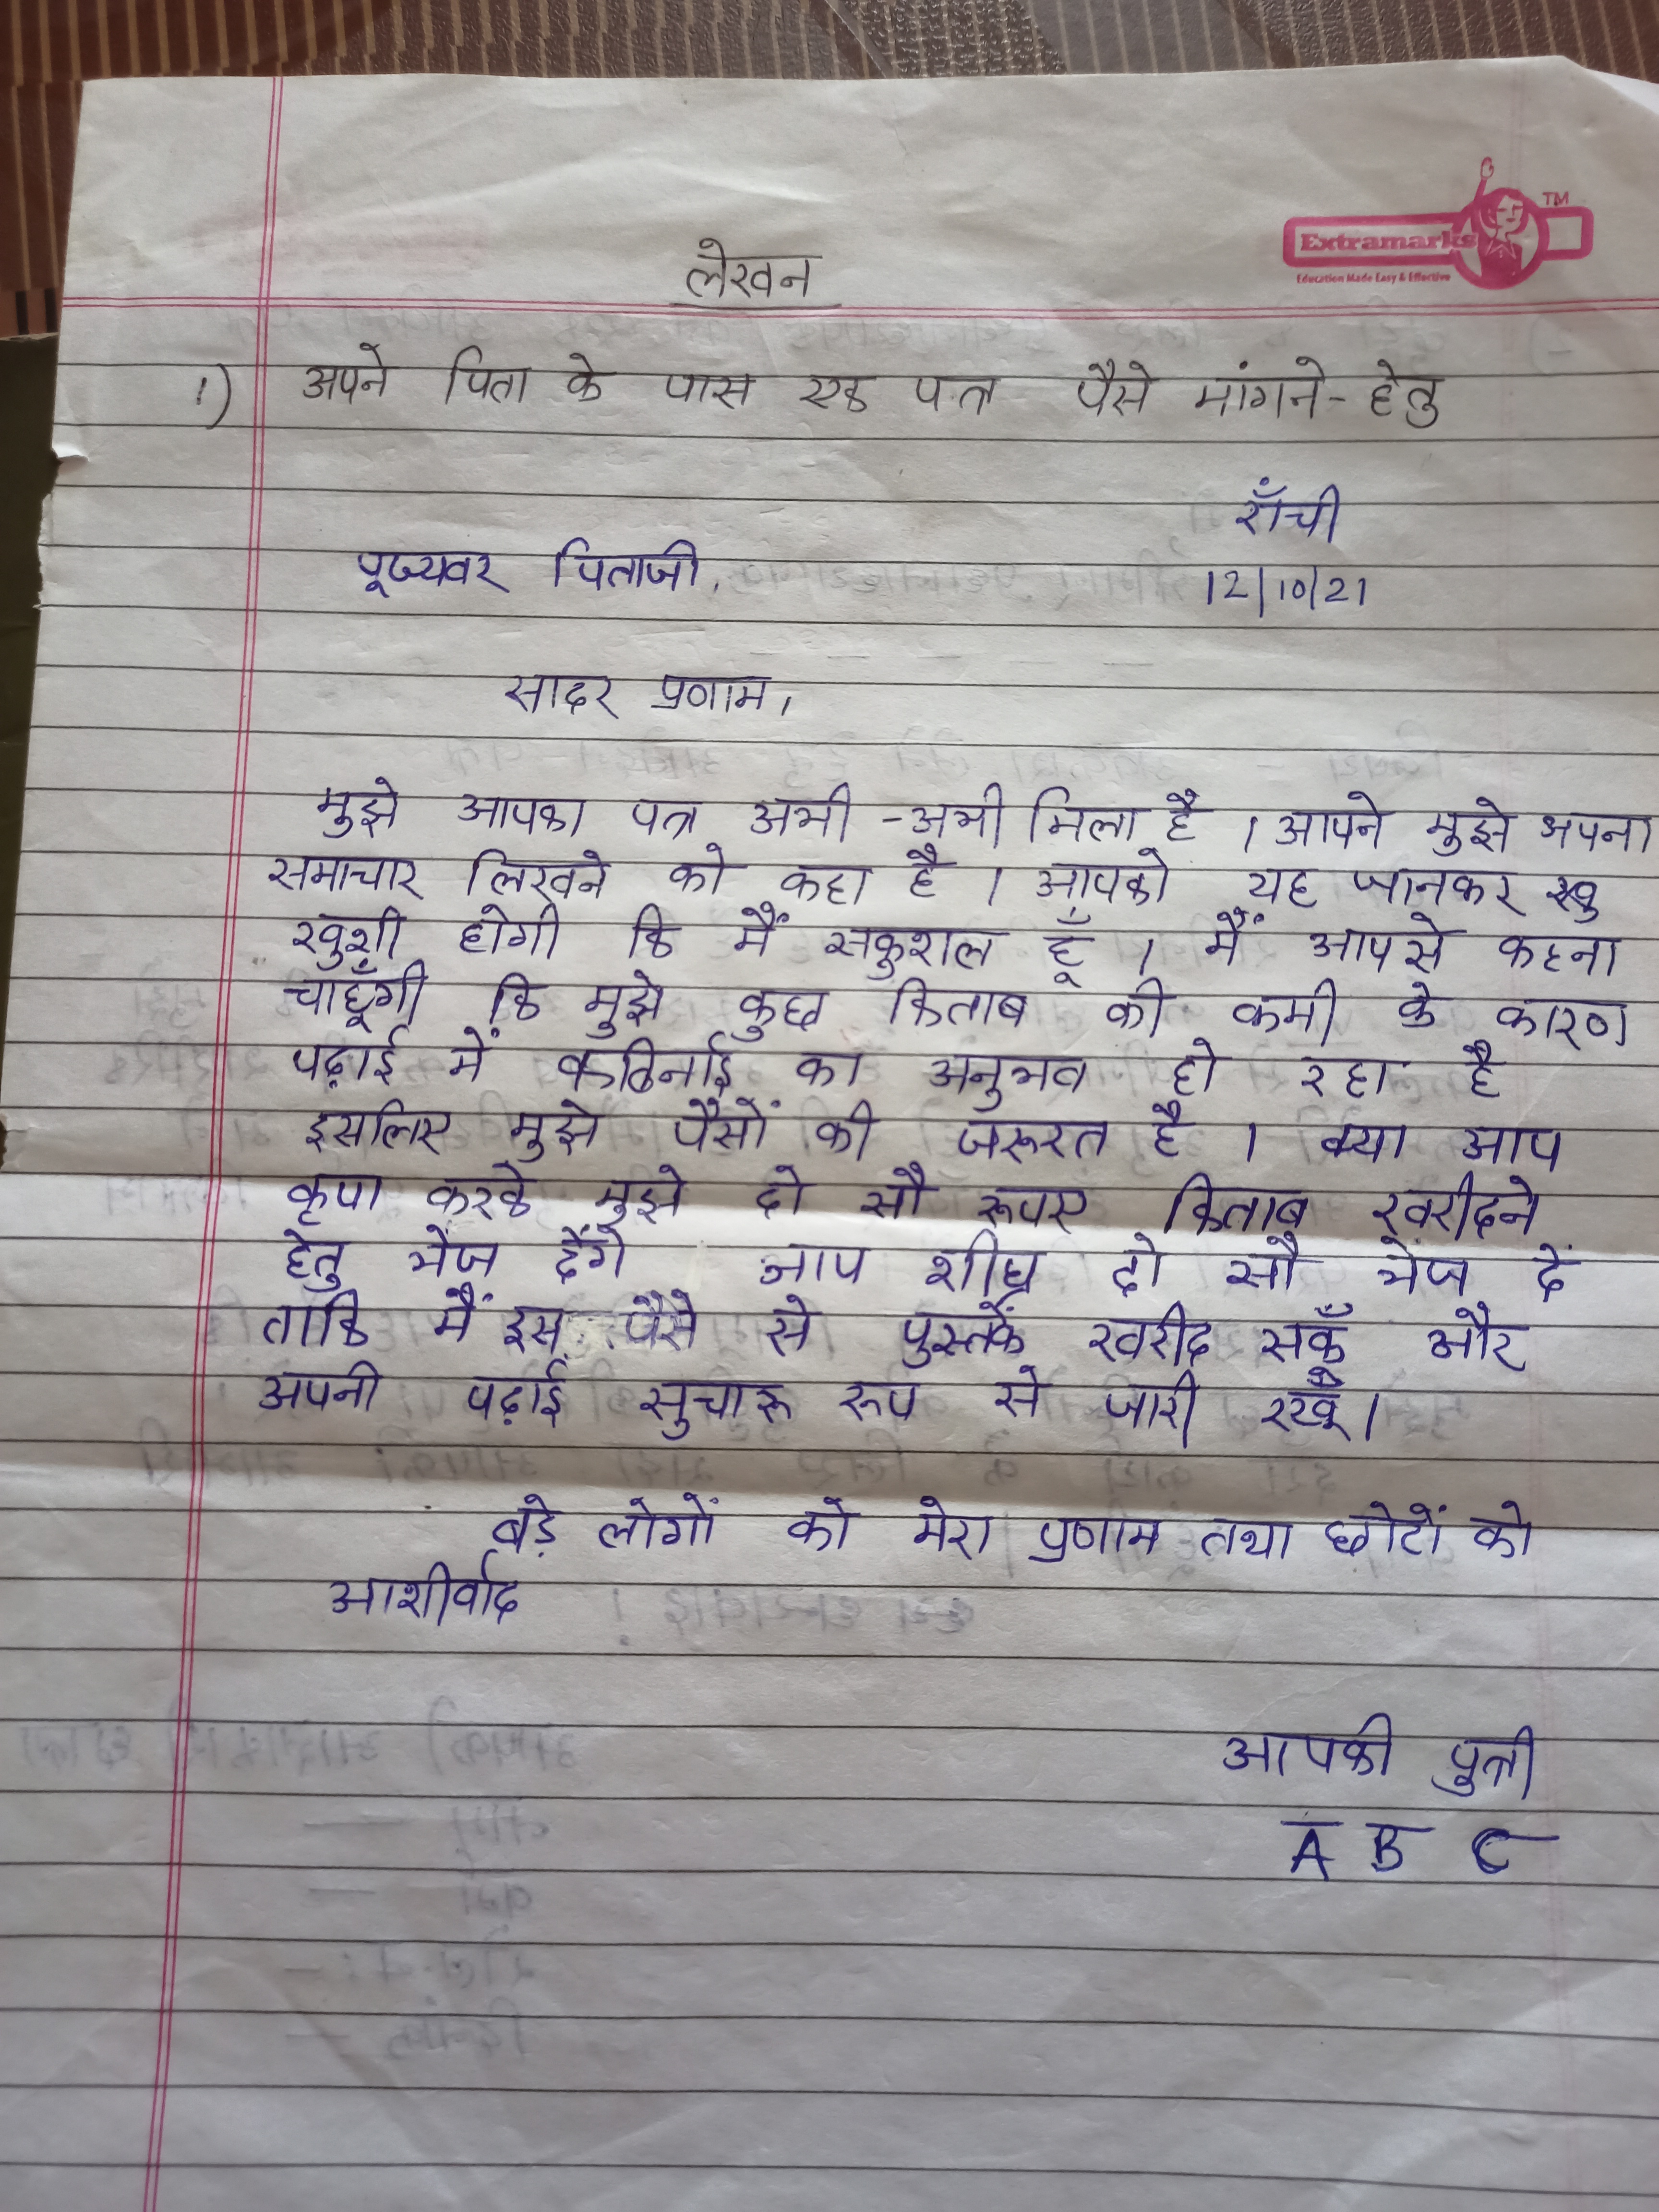 Extramarks TM
Education Made Easy & Effective
लेखन
1) अपने पिता के पास एक पत्र पैसे मांगने-हेतु
राँची
पूज्यवर पिताजी,
12/10/21
सादर प्रणाम,
मुझे आपका पत्र अभी-अभी मिला है । आपने मुझे अपना
समाचार लिखने को कहा है । आपको यह जानकर
खुशी होगी कि मैं सकुशल हूँ । मैं आपसे कहना
चाहूँगी कि मुझे कुछ किताब की कमी के कारण
पढ़ाई में कठिनाई का अनुभव हो रहा है
इसलिए मुझे पैसों की जरूरत है । क्या आप
कृपा करके मुझे दो सौ रूपए किताब खरीदने
हेतु भेज देंगे आप शीघ्र दो सौ भेज दें
ताकि मैं इस पैसे से पुस्तकें खरीद सकूँ और
अपनी पढ़ाई सुचारू रूप से जारी रखूँ।
बड़े लोगों को मेरा प्रणाम तथा छोटों को
आशीर्वाद
आपकी पुत्री
A B C